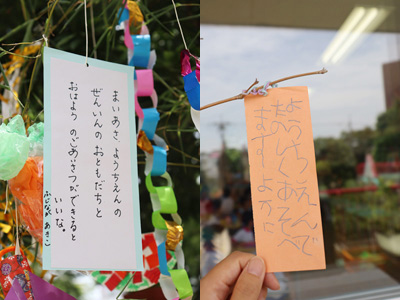 まいあさ ようちえんの
ぜんいんの おともだちと
おはよう のごあいさつができると
いいな。
ふじなが あきこ
ようちえんで
たくさんあそべ
ますように